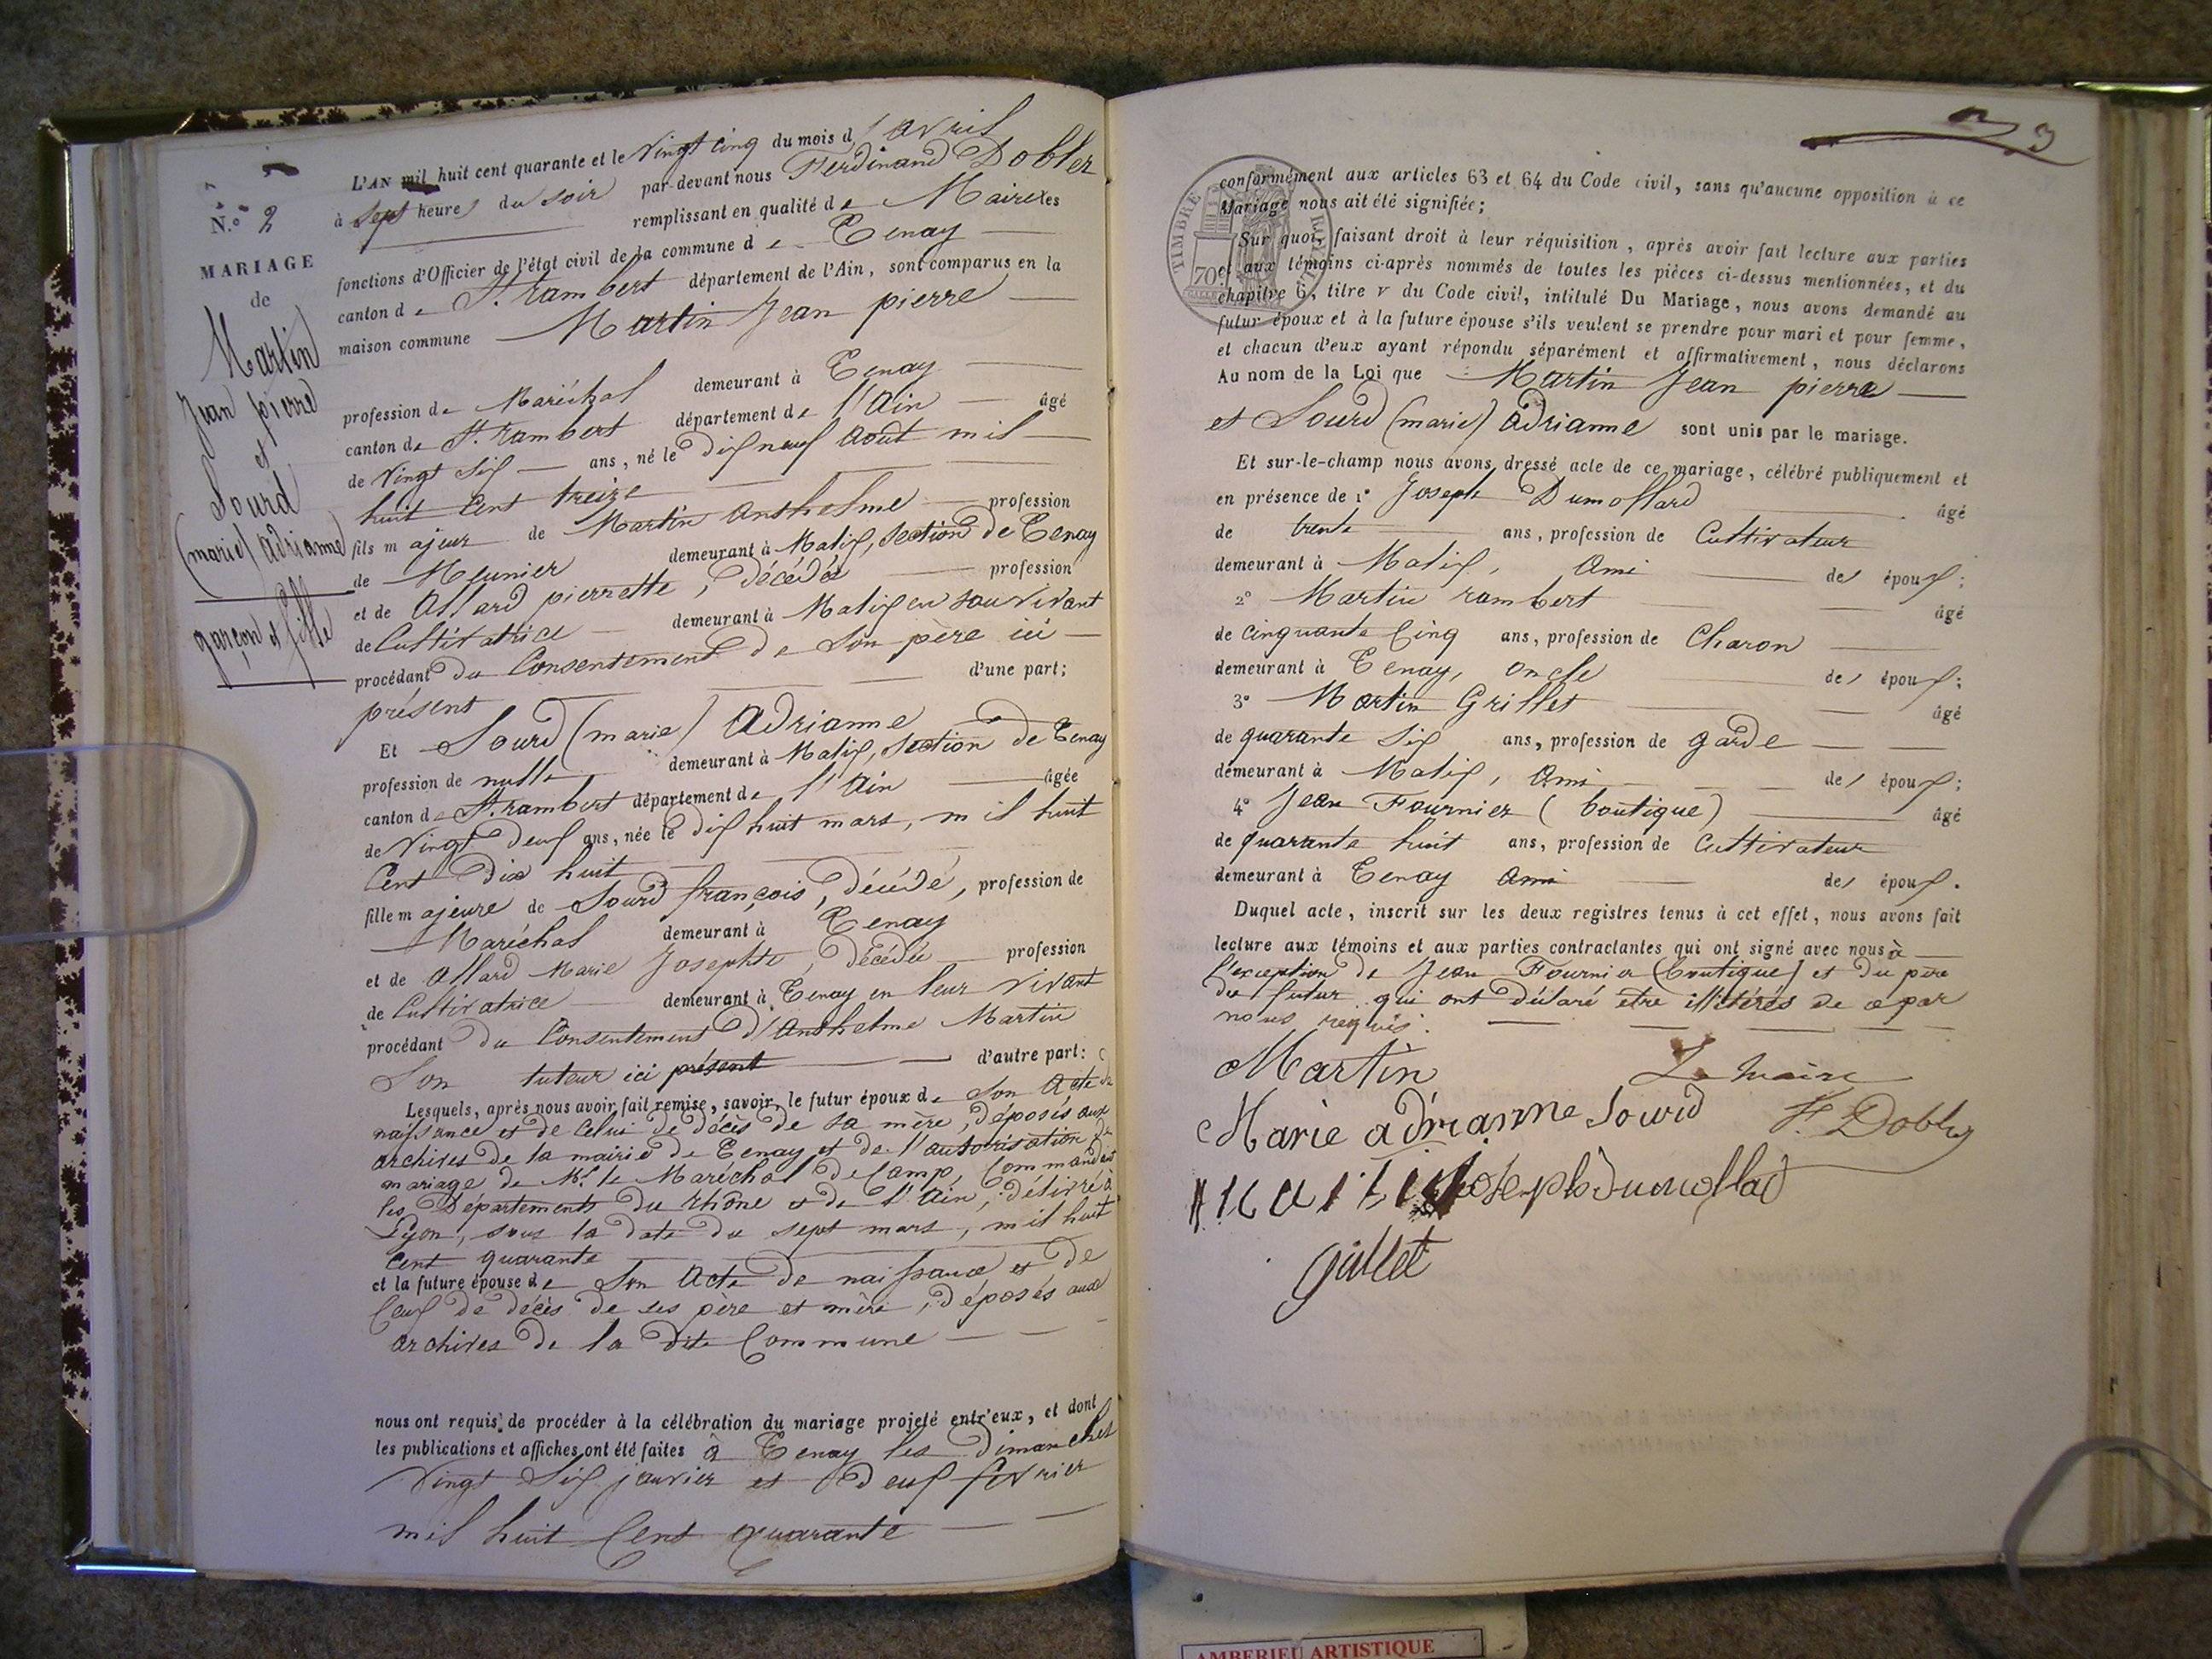 N.º 2
MARIAGE
de
Martin
Jean pierre
et
Sourd
(marie) adrianne
garçon et fille
L'AN mil huit cent quarante et le Vingt cinq du mois d'avril
à Sept heures du soir par-devant nous Ferdinand Dobler
remplissant en qualité de Maire les
fonctions d'Officier de l'état civil de la commune de Tenay
canton de St. rambert département de l'Ain, sont comparus en la
maison commune Martin Jean pierre
profession de Maréchal demeurant à Tenay
canton de St. rambert département de l'Ain âgé
de Vingt Six ans, né le Dix neuf Août mil
huit Cent treize
fils majeur de Martin Anthelme profession
de Meunier demeurant à Malix, Section de Tenay
et de Allard pierrette, Décédée profession
de Cultivatrice demeurant à Malix en son vivant
procédant du Consentement de Son père ici
présent d'une part;
Et Sourd (marie) Adrianne
profession de nulle demeurant à Malix, Section de Tenay
canton de St. rambert département de l'Ain âgée
de Vingt Deux ans, née le Dix huit mars, mil huit
Cent Dix huit
fille majeure de Sourd françois, Décédé, profession de
Maréchal demeurant à Tenay
et de Allard Marie Josephte, Décédée profession
de Cultivatrice demeurant à Tenay en leur vivant
procédant du Consentement d'Anthelme Martin
Son tuteur ici présent d'autre part:
Lesquels, après nous avoir fait remise, savoir, le futur époux de Son Acte de
naissance et de Celui de décès de sa mère, déposés aux
archives de la mairie de Tenay et de l'autorisation de
mariage de Mr. le Maréchal de Camp, Commandant
les Départements du Rhône et de l'Ain, délivré à
Lyon, sous la date du sept mars, mil huit
Cent quarante
et la future épouse de Son Acte de naissance et de
Ceux de décès de ses père et mère, déposés aux
archives de la dite Commune
nous ont requis de procéder à la célébration du mariage projeté entr'eux, et dont
les publications et affiches ont été faites à Tenay les Dimanches
Vingt Six janvier et Deux février
mil huit Cent quarante
3
TIMBRE ROYAL
70
conformément aux articles 63 et 64 du Code civil, sans qu'aucune opposition à ce
Mariage nous ait été signifiée;
Sur quoi, faisant droit à leur réquisition, après avoir fait lecture aux parties
et aux témoins ci-après nommés de toutes les pièces ci-dessus mentionnées, et du
chapitre 6, titre v du Code civil, intitulé Du Mariage, nous avons demandé au
futur époux et à la future épouse s'ils veulent se prendre pour mari et pour femme,
et chacun d'eux ayant répondu séparément et affirmativement, nous déclarons
Au nom de la Loi que Martin Jean pierre
et Sourd (marie) Adrianne sont unis par le mariage.
Et sur-le-champ nous avons dressé acte de ce mariage, célébré publiquement et
en présence de 1º Joseph Dumollard âgé
de trente ans, profession de Cultivateur
demeurant à Malix, Ami des époux;
2º Martin rambert âgé
de cinquante Cinq ans, profession de Charon
demeurant à Tenay, oncle des époux;
3º Martin Grillet âgé
de quarante Six ans, profession de garde
demeurant à Malix, Ami des époux;
4º Jean Fournier (boutique) âgé
de quarante huit ans, profession de Cultivateur
demeurant à Tenay Ami des époux.
Duquel acte, inscrit sur les deux registres tenus à cet effet, nous avons fait
lecture aux témoins et aux parties contractantes qui ont signé avec nous à
l'exception de Jean Fournier (boutique) et du père
du futur qui ont déclaré être illitérés de ce par
nous requis.
Martin Le Maire
Marie adrianne Sourd F. Dobler
Joseph Dumollard
Grillet
AMBERIEU ARTISTIQUE